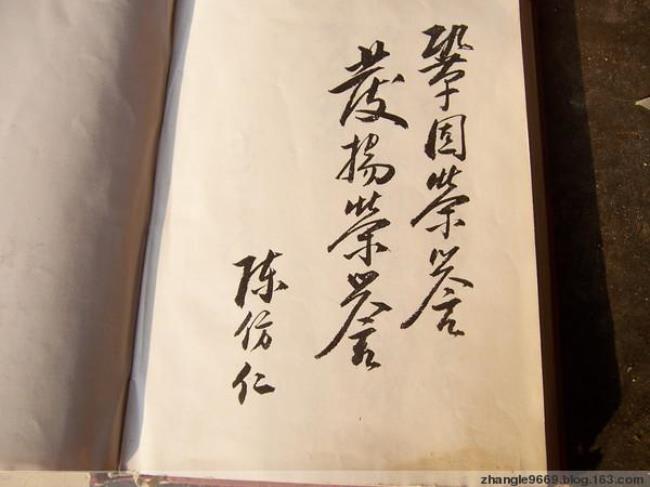 鞏固榮誉
發揚榮誉
陈仿仁
zhangle9669.blog.163.com